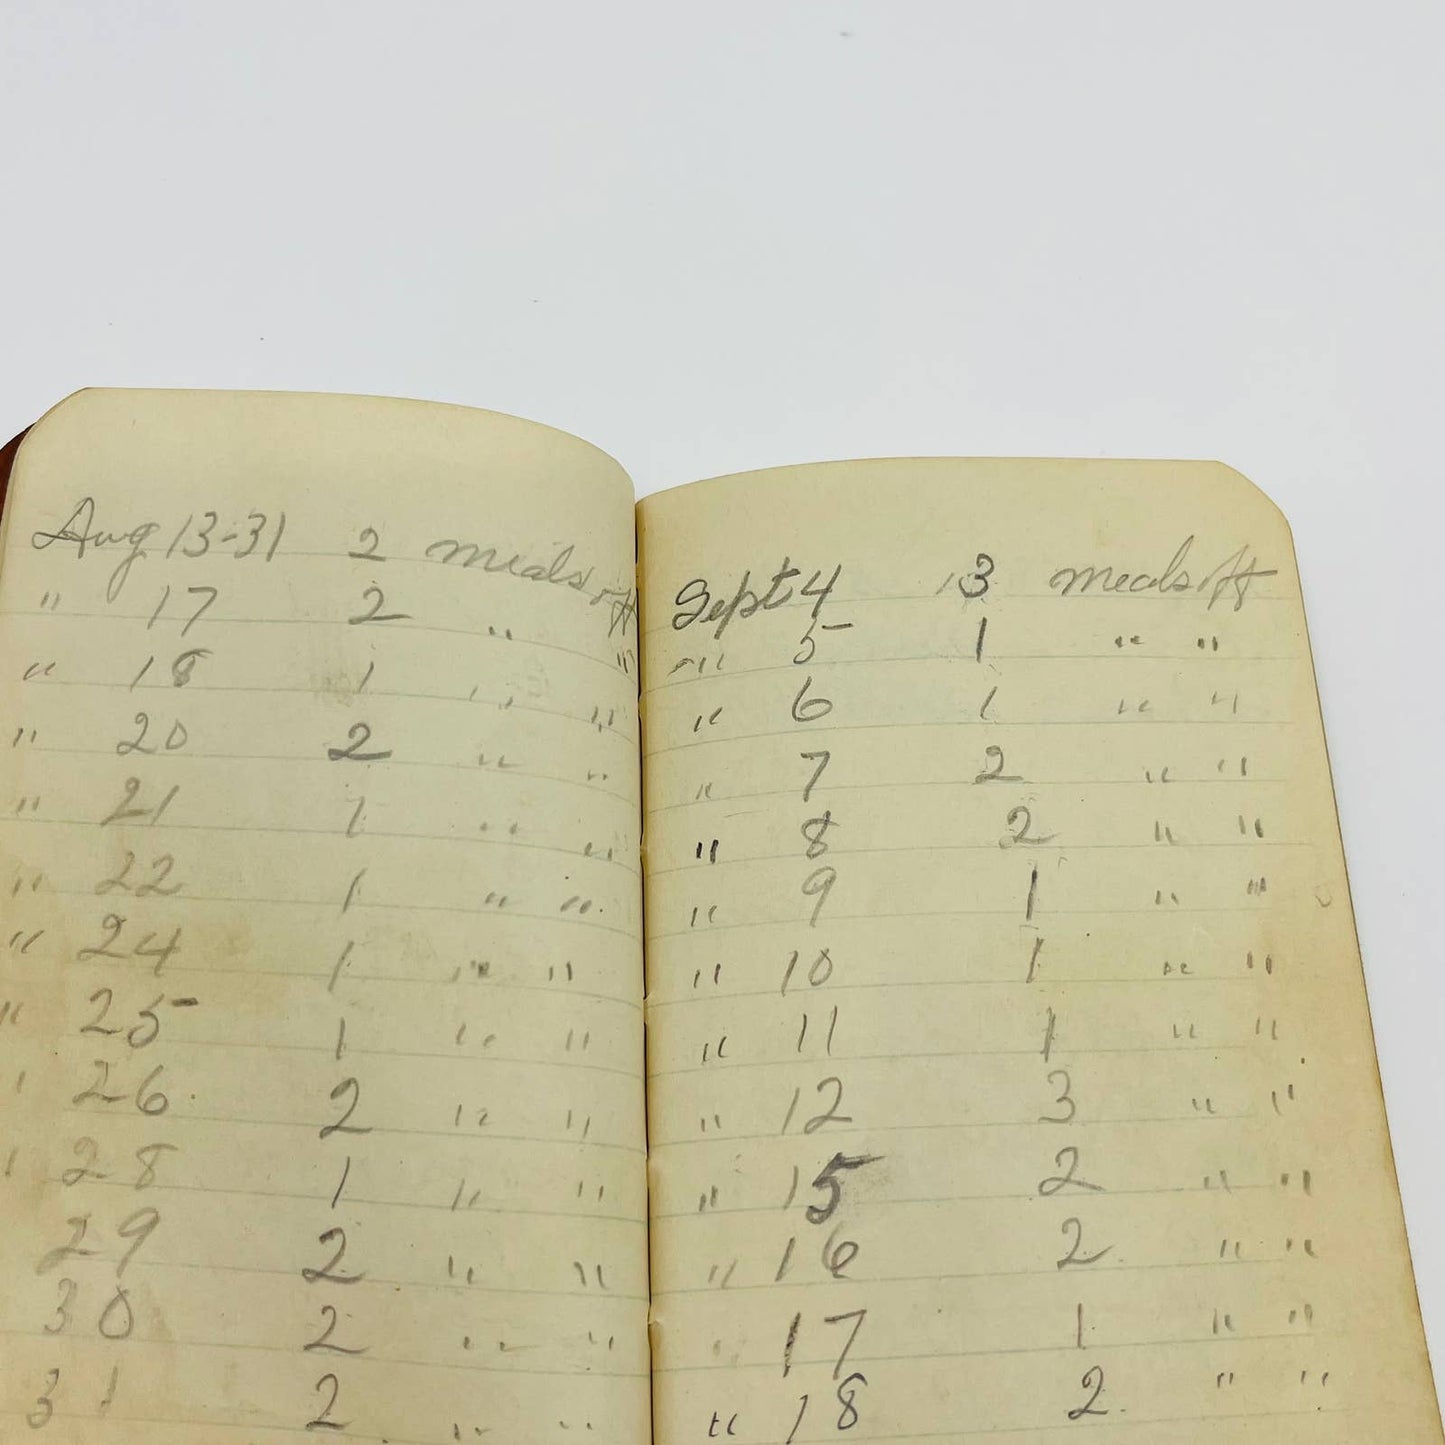 Aug 13-31 2 meals off
" 17 2 " "
" 18 1 " "
" 20 2 " "
" 21 1 " "
" 22 1 " "
" 24 1 " "
" 25 1 " "
" 26 2 " "
" 28 1 " "
29 2 " "
30 2 " "
31 2 " "
Sept 4 3 meals off
" 5 1 " "
" 6 1 " "
" 7 2 " "
" 8 2 " "
" 9 1 " "
" 10 1 " "
" 11 1 " "
" 12 3 " "
" 15 2 " "
" 16 2 " "
" 17 1 " "
" 18 2 " "